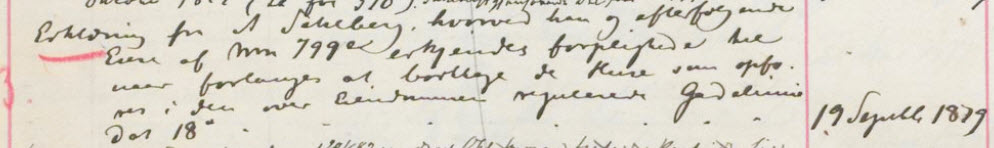 Erklæring fra A Sahlberg, hvorved han og efterfølgende
Eiere af No 799a erkjendes forpligtede til
naar forlanges at borttage de Huse som opfø-
res i den over Eiendommen regulerede Gadelinie
Dat 18
19 Septbr 1879